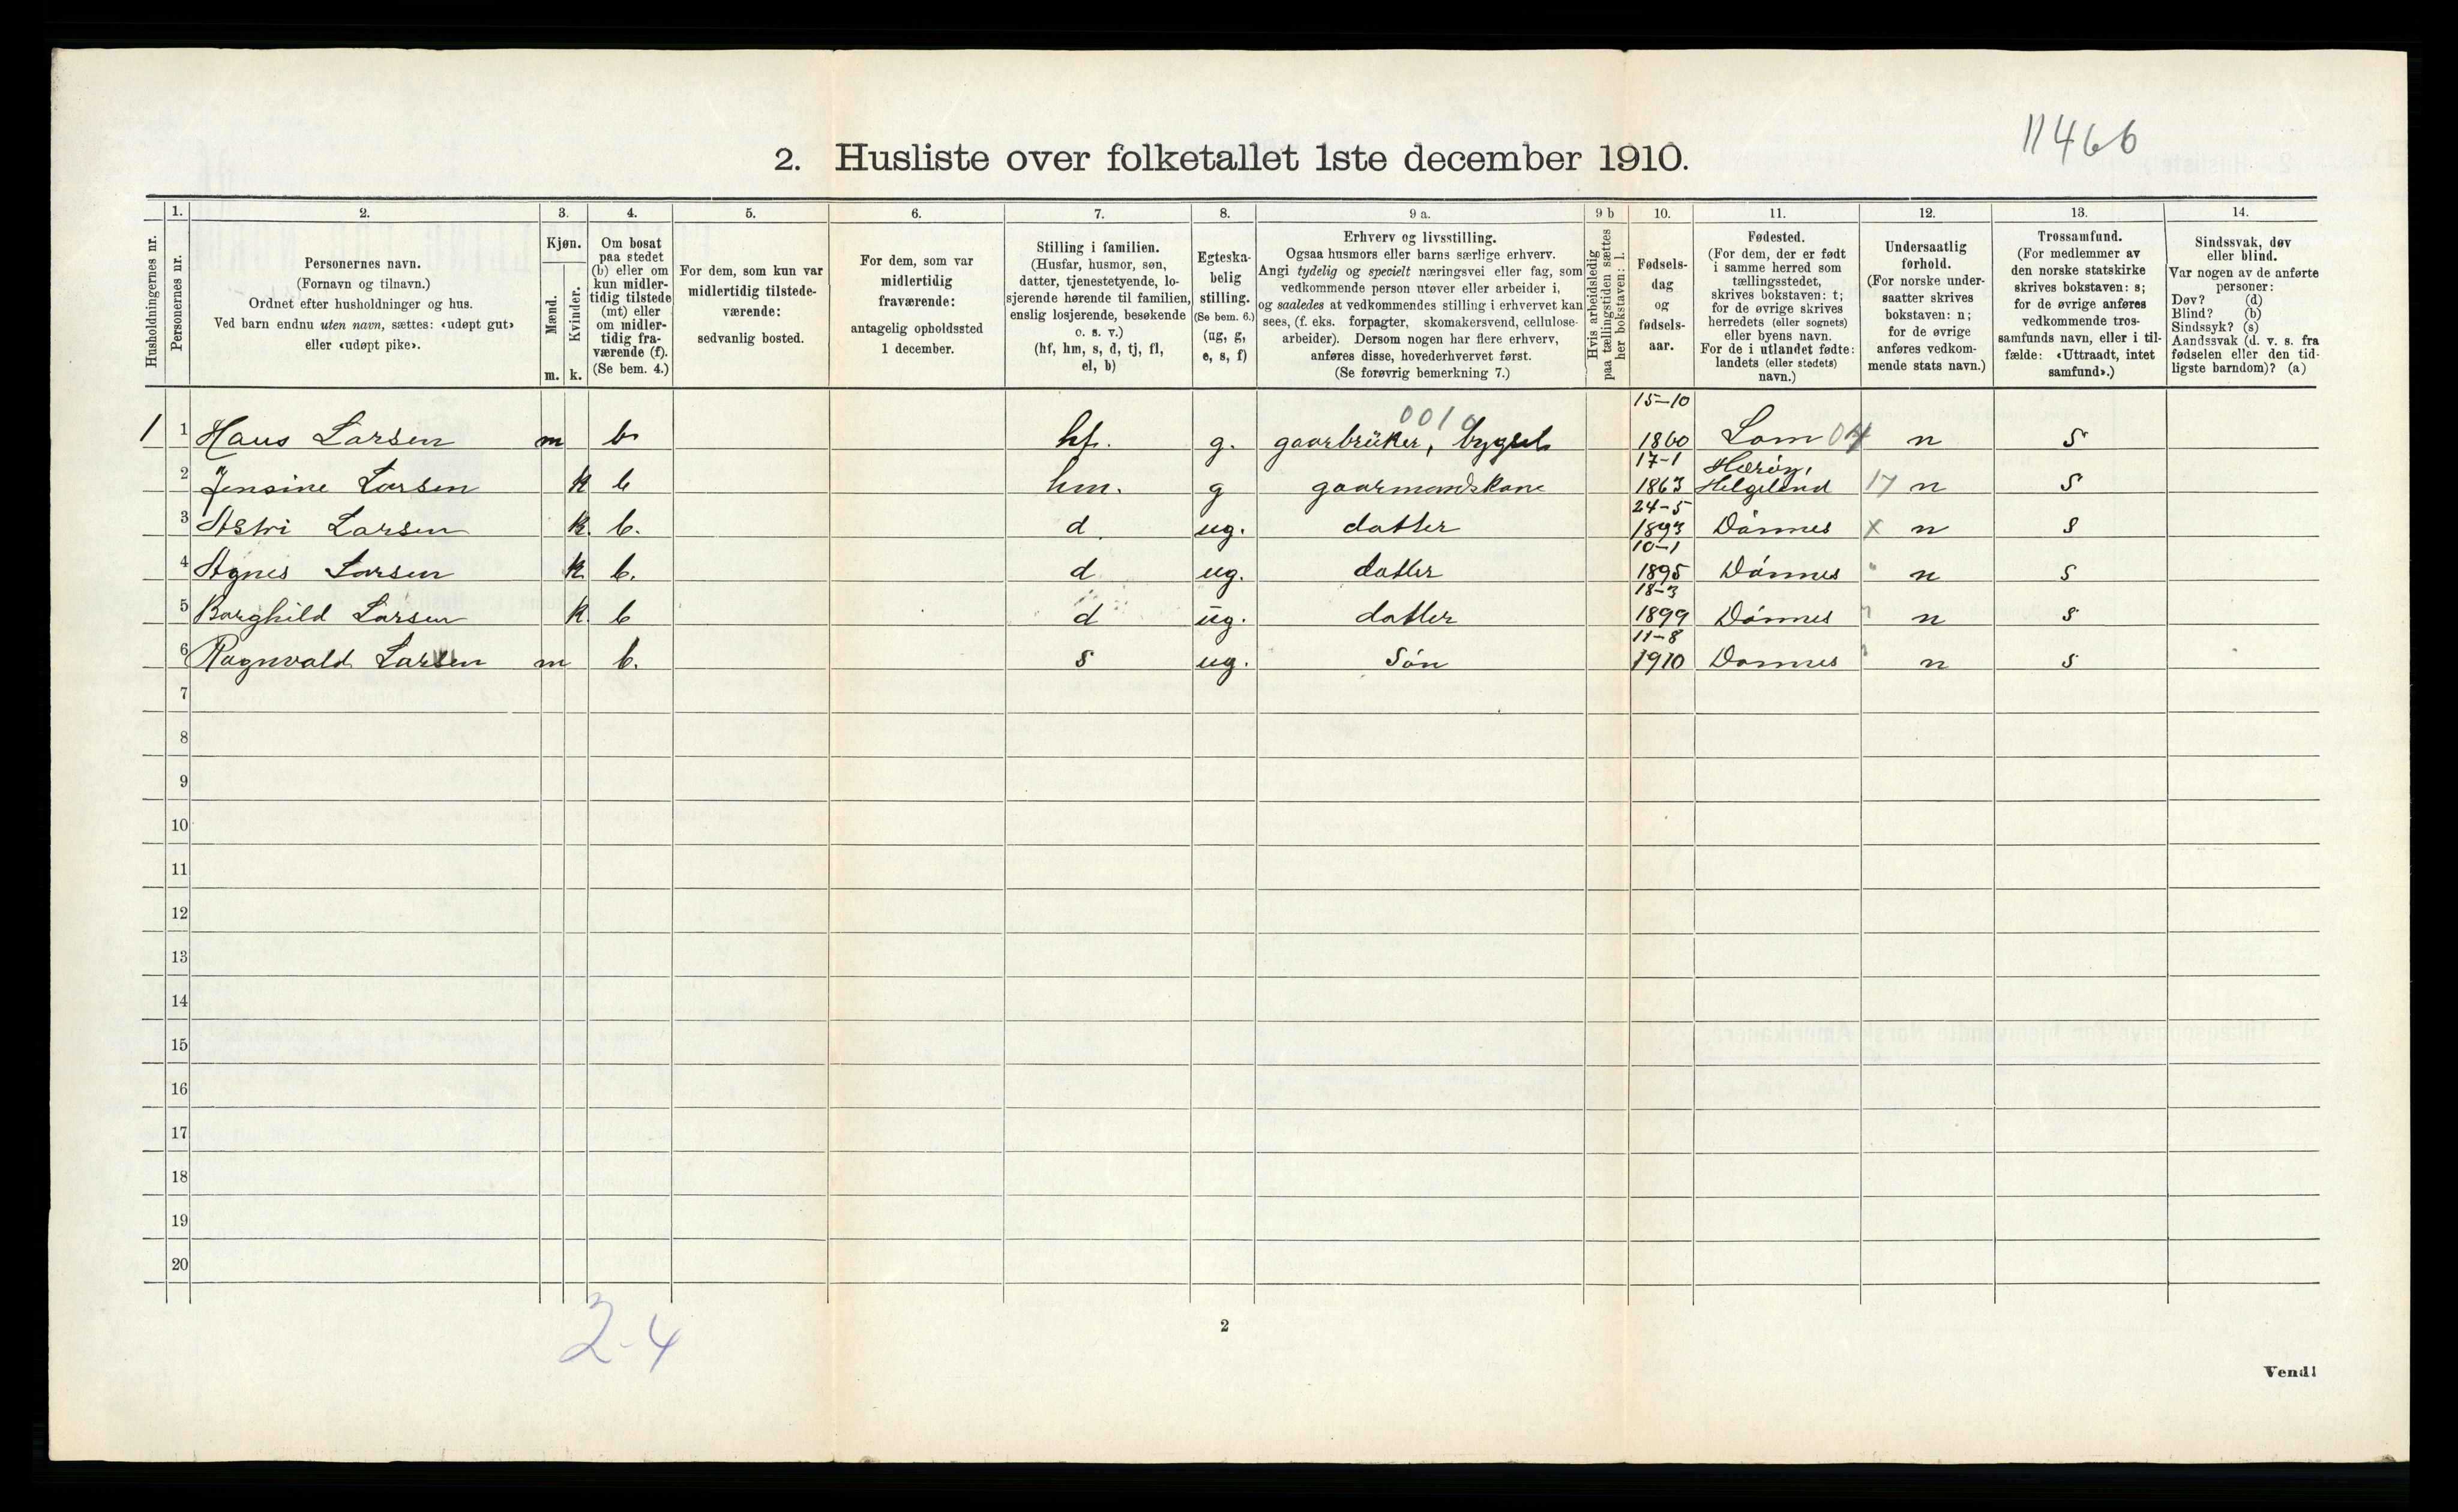 11466
2. Husliste over folketallet 1ste december 1910.
Husholdningernes nr.
1.
Personernes nr.
2.
Personernes navn.
(Fornavn og tilnavn.)
Ordnet efter husholdninger og hus.
Ved barn endnu uten navn, sættes: «udøpt gut»
eller «udøpt pike».
3.
Kjøn.
Mænd.
Kvinder.
m. k.
4.
Om bosat
paa stedet
(b) eller om
kun midler-
tidig tilstede
(mt) eller
om midler-
tidig fra-
værende (f).
(Se bem. 4.)
5.
For dem, som kun var
midlertidig tilstede-
værende:
sedvanlig bosted.
6.
For dem, som var
midlertidig
fraværende:
antagelig opholdssted
1 december.
7.
Stilling i familien.
(Husfar, husmor, søn,
datter, tjenestetyende, lo-
sjerende hørende til familien,
enslig losjerende, besøkende
o. s. v.)
(hf, hm, s, d, tj, fl,
el, b)
8.
Egteska-
belig
stilling.
(Se bem. 6.)
(ug, g,
e, s, f)
9 a.
Erhverv og livsstilling.
Ogsaa husmors eller barns særlige erhverv.
Angi tydelig og specielt næringsvei eller fag, som
vedkommende person utøver eller arbeider i,
og saaledes at vedkommendes stilling i erhvervet kan
sees, (f. eks. forpagter, skomakersvend, cellulose-
arbeider). Dersom nogen har flere erhverv,
anføres disse, hovederhvervet først.
(Se forøvrig bemerkning 7.)
9 b
Hvis arbeidsledig
paa tællingstiden sættes
her bokstaven: l.
10.
Fødsels-
dag
og
fødsels-
aar.
11.
Fødested.
(For dem, der er født
i samme herred som
tællingsstedet,
skrives bokstaven: t;
for de øvrige skrives
herredets (eller sognets)
eller byens navn.
For de i utlandet fødte:
landets (eller stedets)
navn.)
12.
Undersaatlig
forhold.
(For norske under-
saatter skrives
bokstaven: n;
for de øvrige
anføres vedkom-
mende stats navn.)
13.
Trossamfund.
(For medlemmer av
den norske statskirke
skrives bokstaven: s;
for de øvrige anføres
vedkommende tros-
samfunds navn, eller i til-
fælde: «Uttraadt, intet
samfund».)
14.
Sindssvak, døv
eller blind.
Var nogen av de anførte
personer:
Døv? (d)
Blind? (b)
Sindssyk? (s)
Aandssvak (d. v. s. fra
fødselen eller den tid-
ligste barndom)? (a)
0010 15-10
1 1 Hans Larsen m b. hf. g. gaarbrüker, bygsel 1860 Lom 04 n s
17-1 Herøy,
2 Jensine Larsen k b hm. g gaarmandskone 1863 Helgeland 17 n s
24-5
3 Astri Larsen k. b. d. ug. datter 1893 Dönnes x n s
10-1
4 Agnes Larsen k b. d ug. datter 1895 Dönnes " n s
18-3
5 Borghild Larsen k. b d ug. datter 1899 Dönnes " n s
11-8
6 Ragnvald Larsen m b. s ug. Sön 1910 Donnes " n s
7
8
9
10
11
12
13
14
15
16
17
18
19
20
2-4
2
Vend!